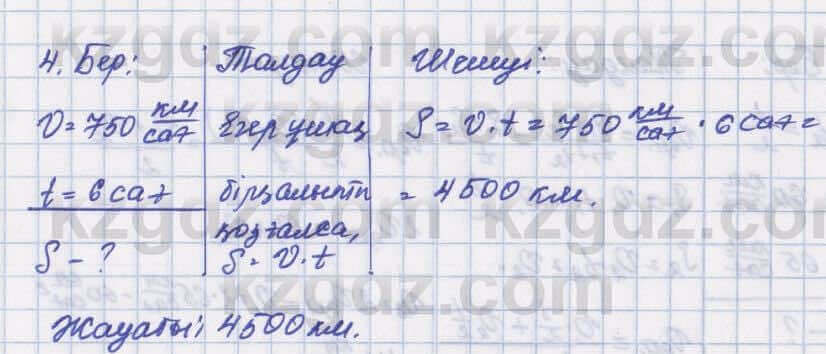 kzgdz.com kzgdz.com
4. Бер: Талдау Шешуі:
V = 750 км/сағ Егер ұшақ S = V·t = 750 км/сағ · 6 сағ =
t = 6 сағ бірқалыпты = 4500 км.
қозғалса,
S - ? S = V·t
kzgdz.com kzgdz.com
Жауабы: 4500 км.